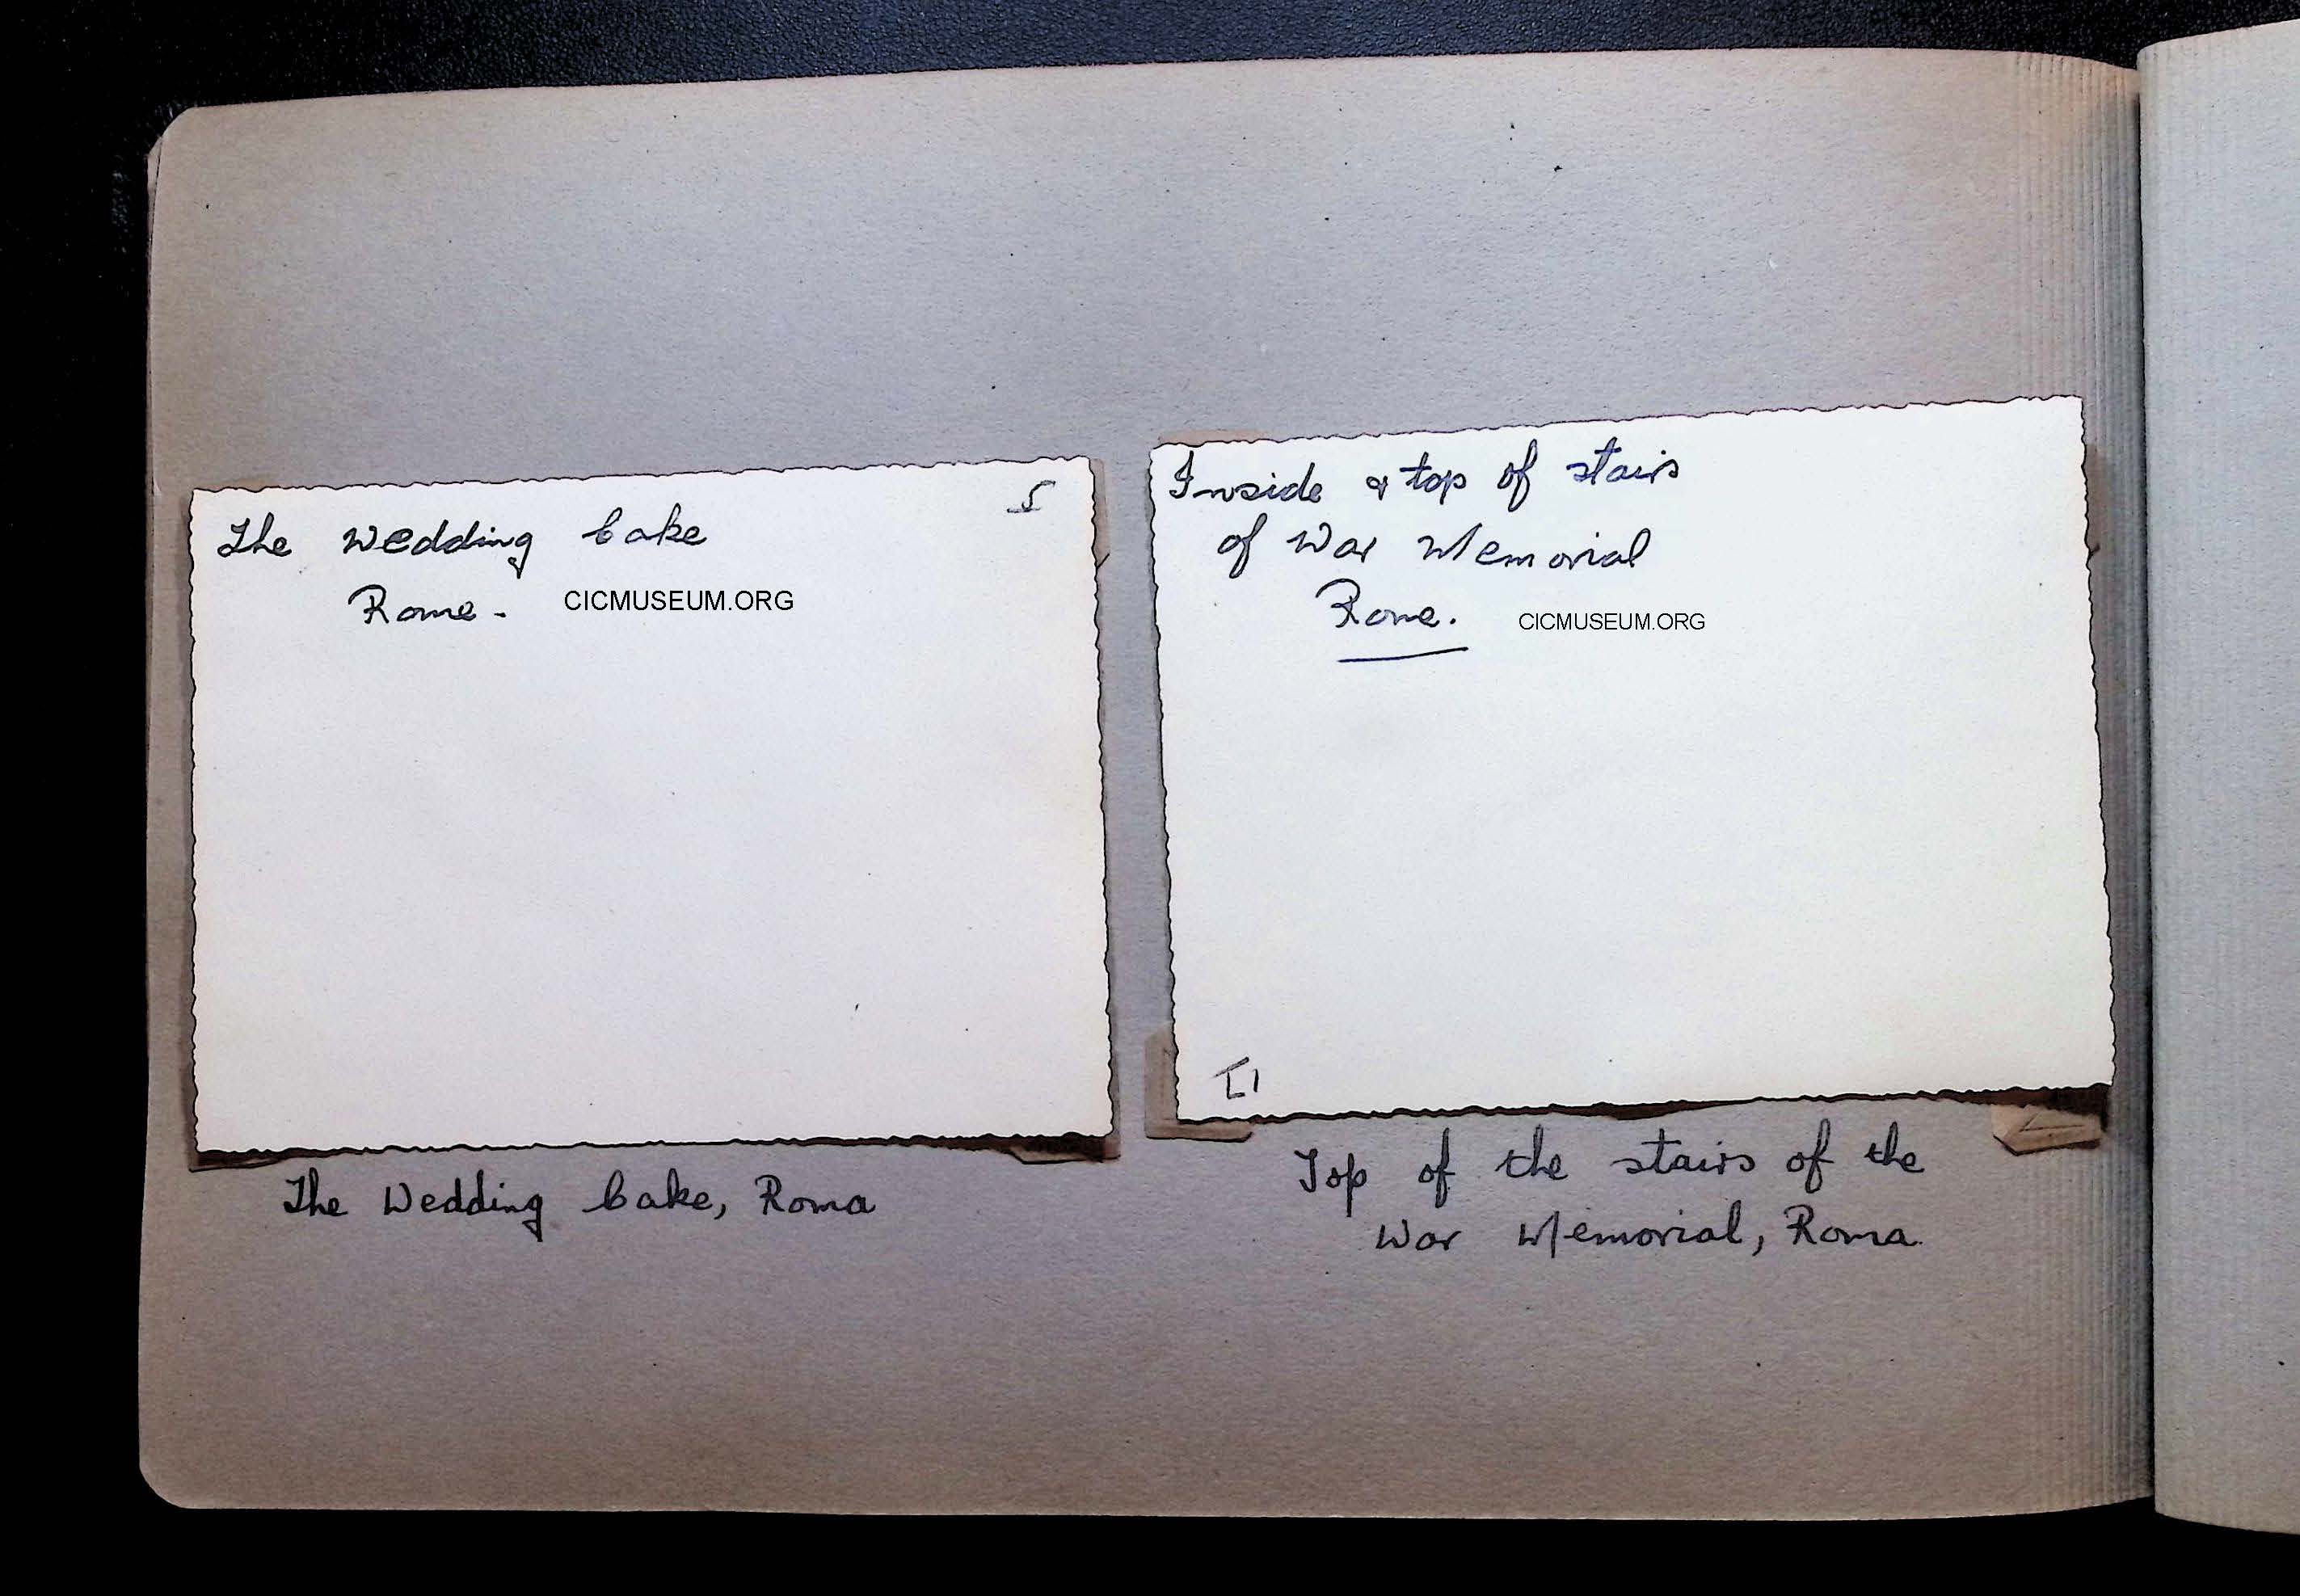 5
The Wedding Cake
Rome -
CICMUSEUM.ORG
The Wedding Cake, Roma
Inside & top of stairs
of War Memorial
Rome.
CICMUSEUM.ORG
Top of the stairs of the
War Memorial, Roma